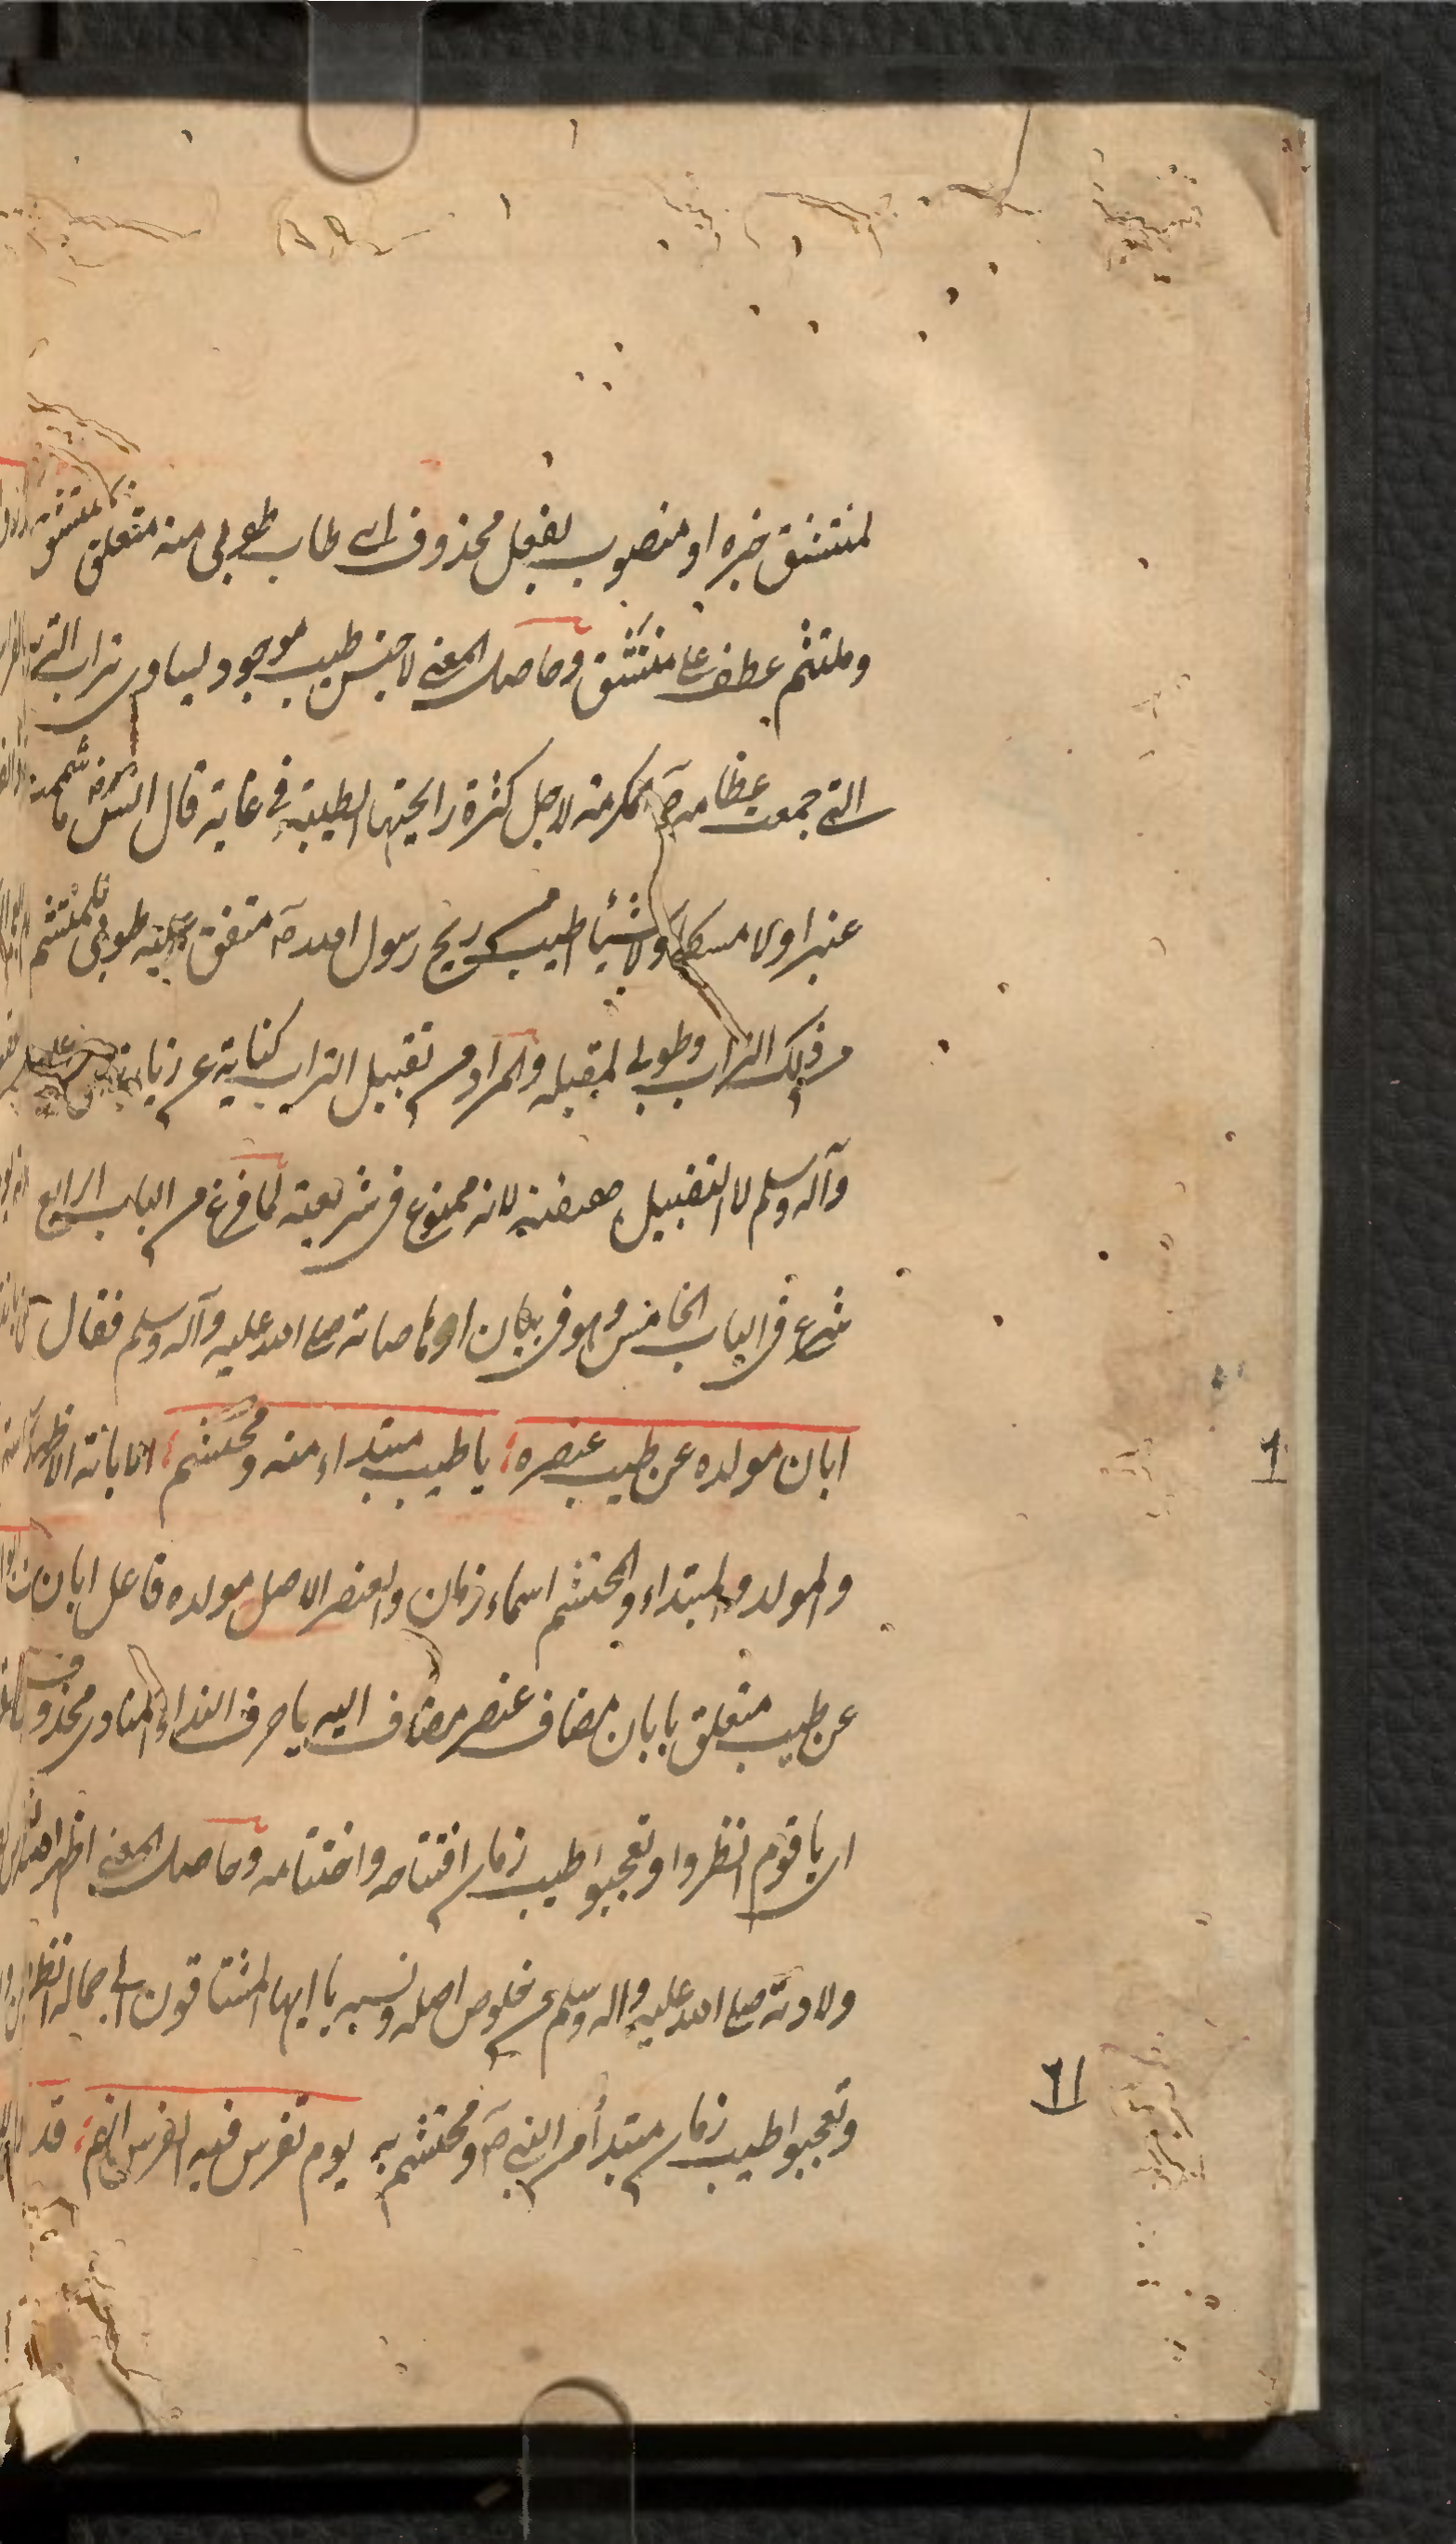 لمنتشق خبره او منصوب بفعل محذوف اى طاب طوبى منه متعلق بمنتشق
وملتثم عطف على منتشق وحاصل المعنى لا جنس طيب موجود يساوى تراب التربة
التى جمعت عظامه ص مكرمة لاجل كثرة رايحتها الطيبة فى غاية قال انس رض ما شممت
عنبرا ولا مسكا ولا شيأ اطيب من ريح رسول الله ص متفق عليه طوبى لملتثم
من ذلك التراب وطوبى لمقبله والمراد من تقبيل التراب كناية عن زيارته عليه
وآله وسلم لا التقبيل حقيقة لانه ممنوع فى شريعته لما فرغ من الباب الرابع
شرع فى الباب الخامس وهو فى بيان ارهاصاته صلى الله عليه وآله وسلم فقال
ابان مولده عن طيب عنصره؛ يا طيب مبتداء منه ومختتم؛ الابانة الاظهار
والمولد والمبتداء والمختتم اسماء زمان والعنصر الاصل مولده فاعل ابان
عن طيب متعلق بابان مضاف عنصر مضاف اليه يا حرف النداء والمنادى محذوف
اى يا قوم انظروا وتعجبوا طيب زمان افتتاحه واختتامه وحاصل المعنى اظهر
ولادته صلى الله عليه وآله وسلم عن خلوص اصله ونسبه يا ايها المشتاقون الى جماله انظروا
وتعجبوا طيب زمان مبتدأ من النبى ص ومختتم به يوم تفرس فيه الفرس انهم؛ قد
١
١٢